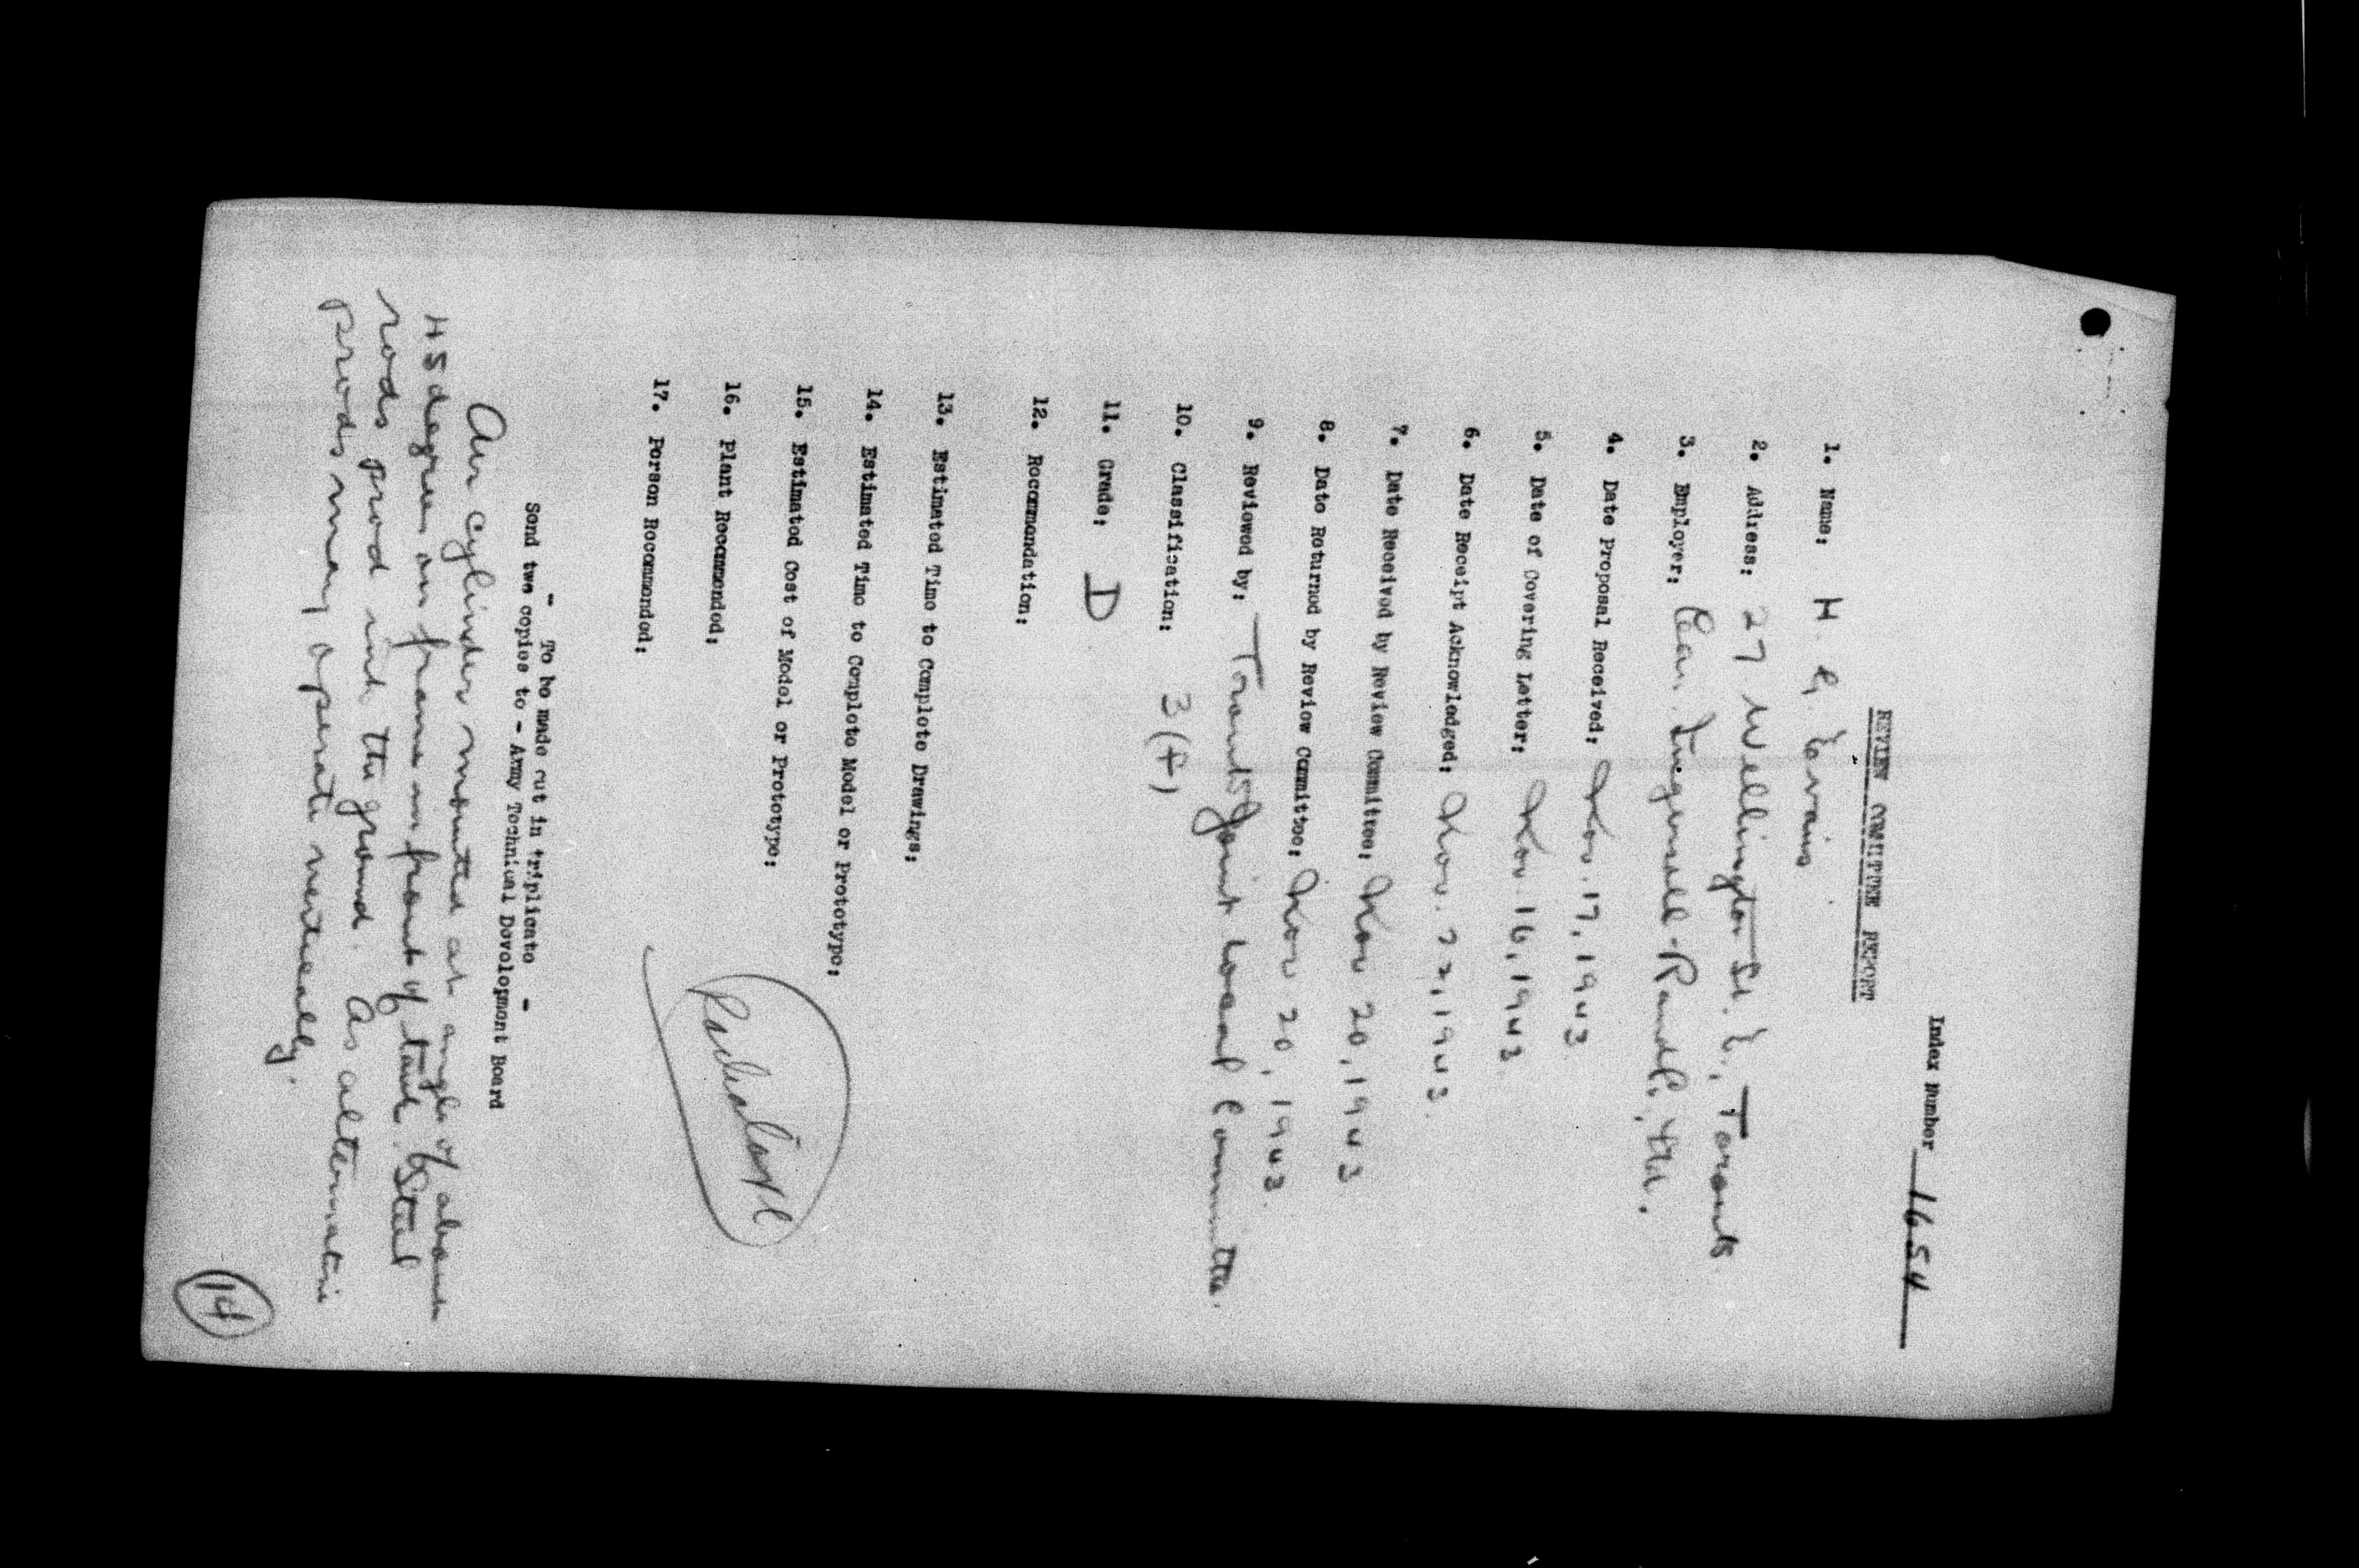 Index Number 1654
REVIEW COMMITTEE REPORT
1. Name: H. G. Evans
2. Address: 27 Wellington St. E., Toronto
3. Employer: Can. Ingersoll-Rand Co., Ltd.
4. Date Proposal Received: Nov. 17, 1943
5. Date of Covering Letter: Nov. 16, 1943
6. Date Receipt Acknowledged: Nov. 22, 1943.
7. Date Received by Review Committee: Nov 20, 1943
8. Date Returned by Review Committee: Nov 20, 1943
9. Reviewed by: Toronto Joint Local Committee.
10. Classification: 3(f)
11. Grade: D
12. Recommendation:
13. Estimated Time to Complete Drawings:
14. Estimated Time to Complete Model or Prototype:
15. Estimated Cost of Model or Prototype:
16. Plant Recommended:
17. Person Recommended:
- To be made out in triplicate -
Send two copies to - Army Technical Development Board
Air cylinders mounted at angle of about
45 degrees on frame in front of tank. Steel
rods prod into the ground. As alternative
prods may operate vertically.
14